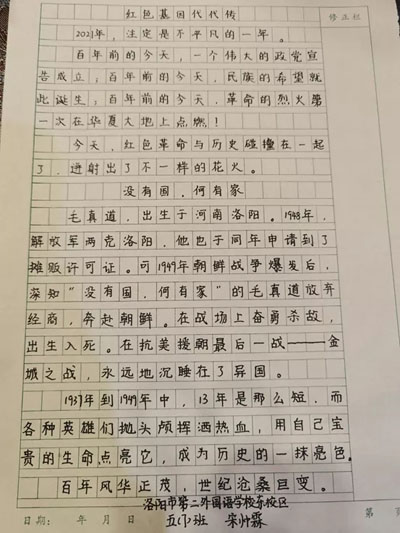 红色基因代代传
修正栏
2021年，注定是不平凡的一年。
百年前的今天，一个伟大的政党宣
告成立；百年前的今天，民族的希望就
此诞生；百年前的今天，革命的烈火第
一次在华夏大地上点燃！
今天，红色革命与历史碰撞在一起
了，迸射出了不一样的花火。
没有国，何有家
毛真道，出生于河南洛阳。1948年，
解放军两克洛阳，他也于同年申请到了
摊贩许可证。可1949年朝鲜战争爆发后，
深知“没有国，何有家”的毛真道放弃
经商，奔赴朝鲜。在战场上奋勇杀敌，
出生入死。在抗美援朝最后一战——金
城之战，永远地沉睡在了异国。
1937年到1949年中，13年是那么短，而
各种英雄们抛头颅挥洒热血，用自己宝
贵的生命点亮它，成为历史的一抹亮色。
百年风华正茂，世纪沧桑巨变。
洛阳市第二外国语学校东校区
日期： 年 月 日
五(1)班 朱帅霖
第